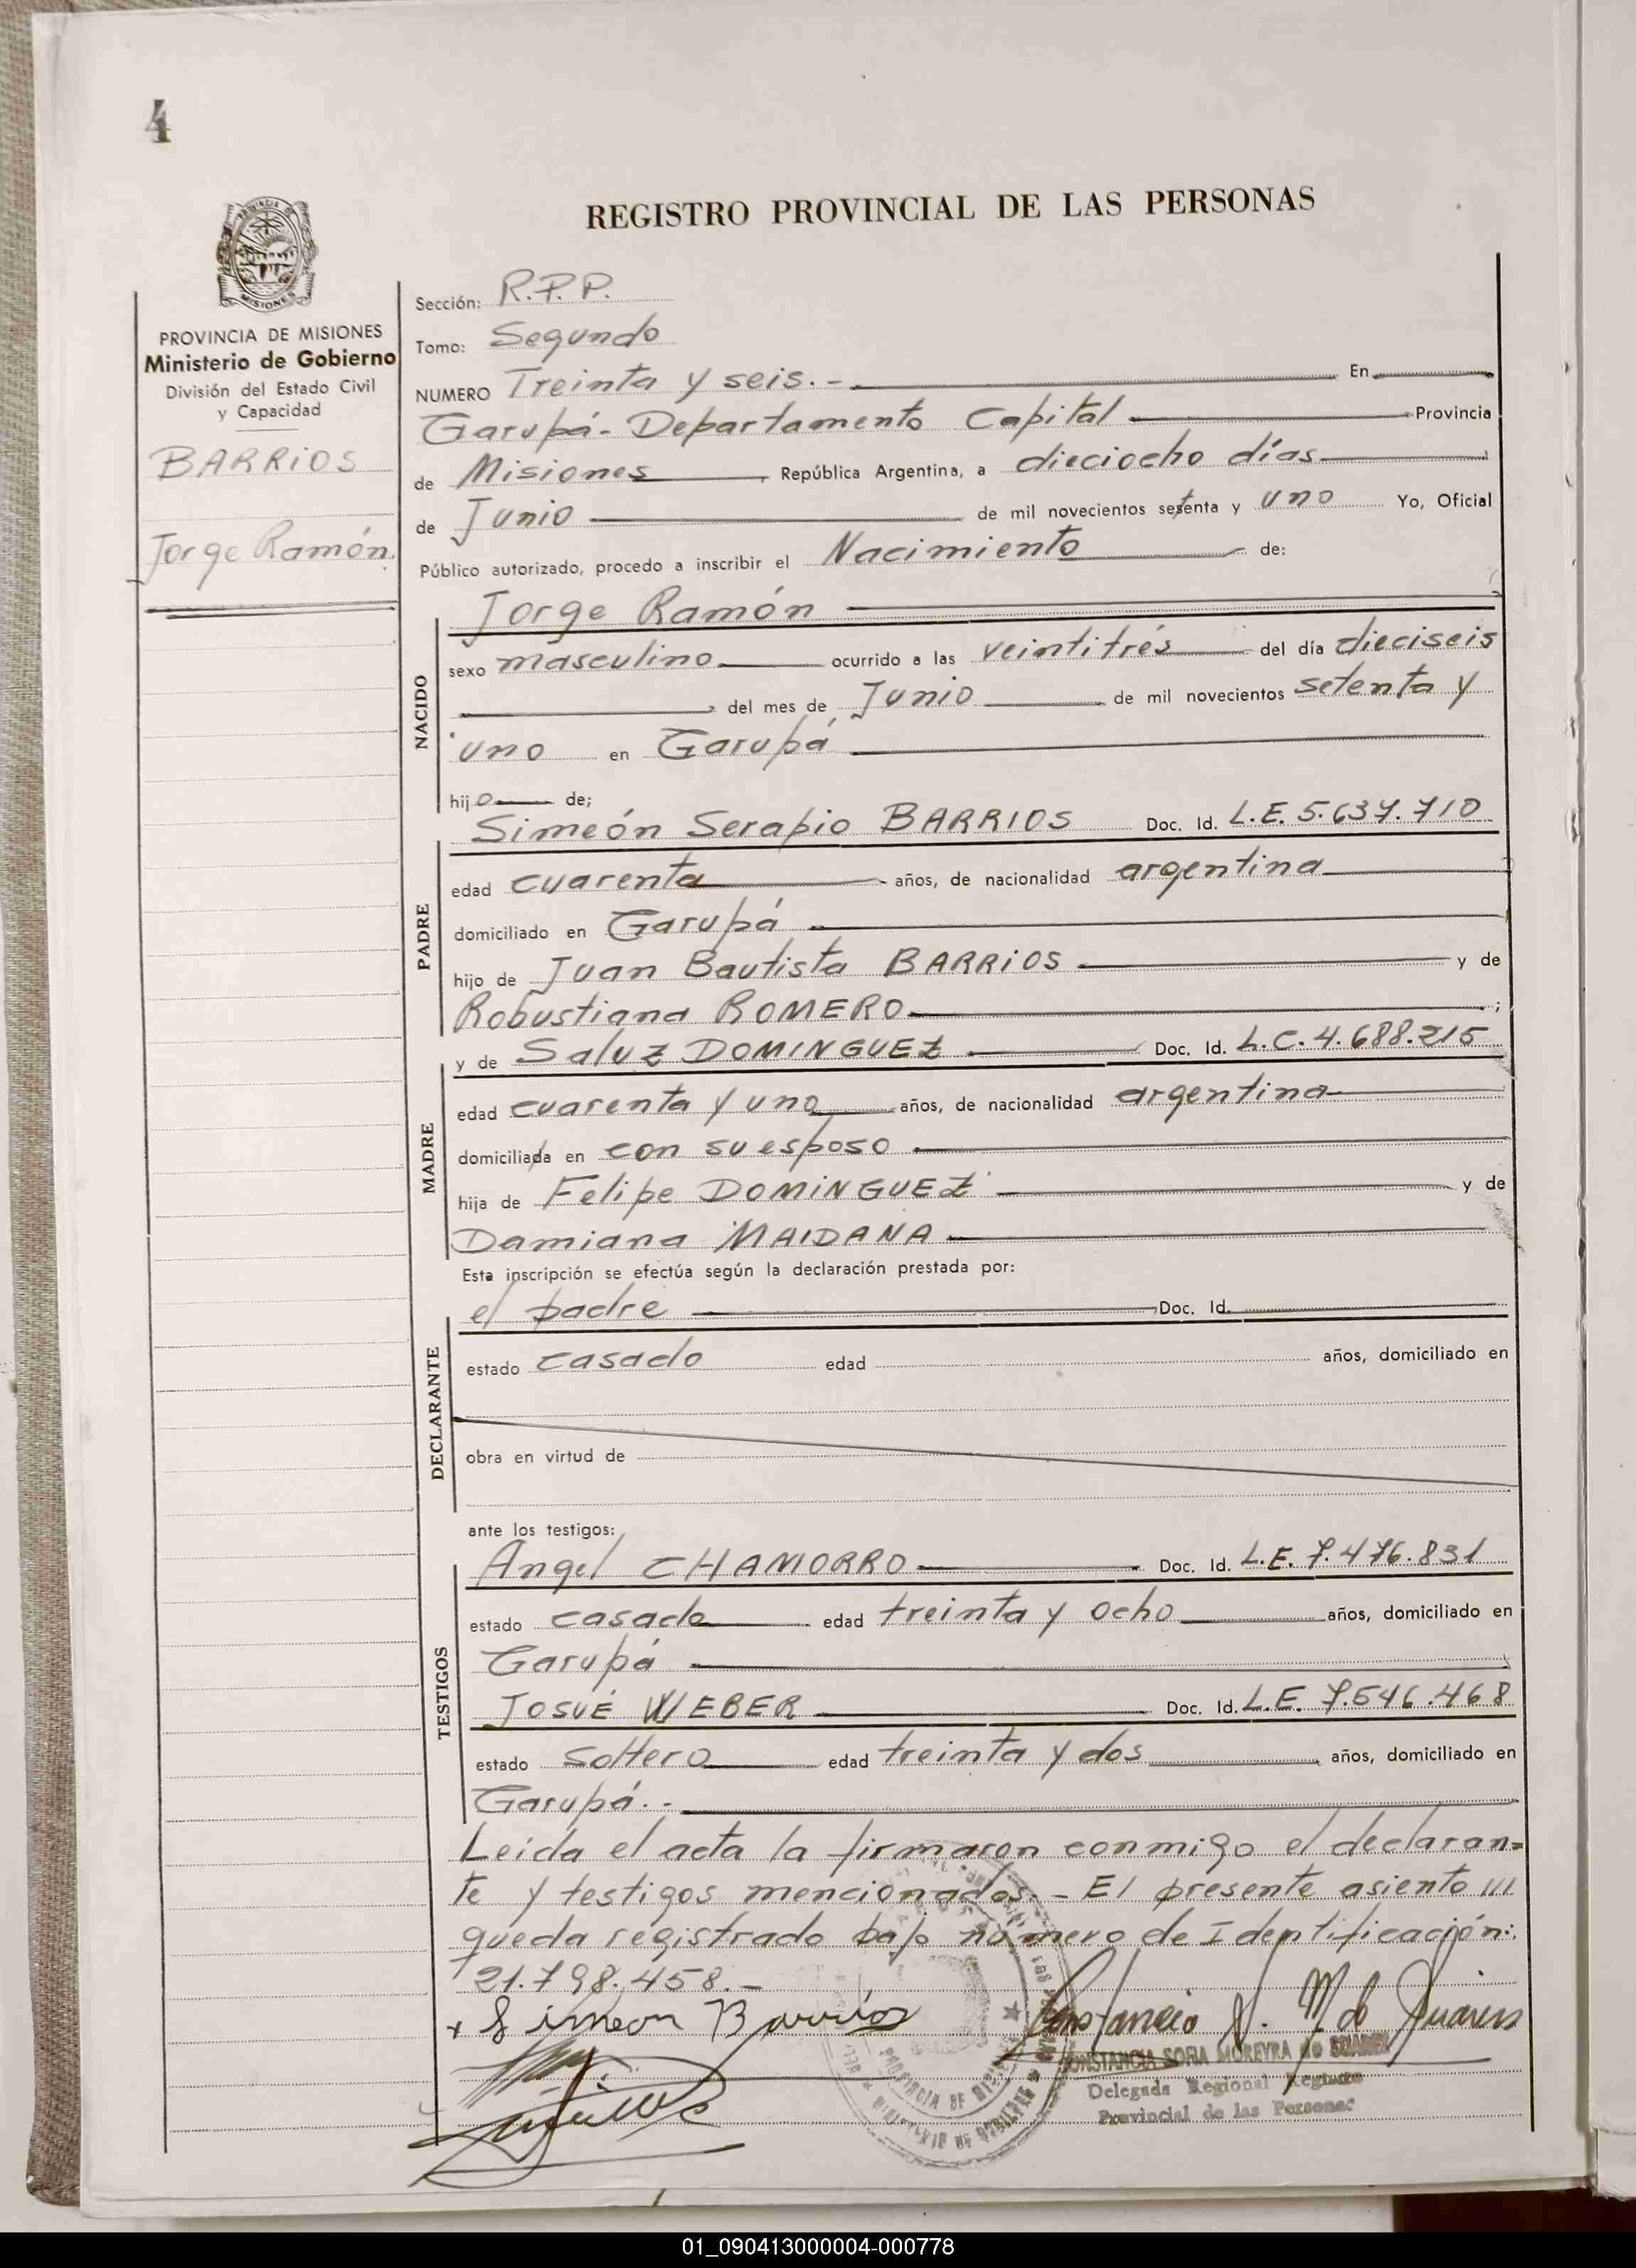 4
REGISTRO PROVINCIAL DE LAS PERSONAS
PROVINCIA DE MISIONES
Ministerio de Gobierno
División del Estado Civil
y Capacidad
BARRIOS
Jorge Ramón.
Sección: R.P.P.
Tomo: Segundo
NUMERO Treinta y seis.- En
Garupá- Departamento Capital Provincia
de Misiones, República Argentina, a dieciocho días
de Junio de mil novecientos setenta y uno Yo, Oficial
Público autorizado, procedo a inscribir el Nacimiento de:
Jorge Ramón
NACIDO
sexo masculino ocurrido a las veintitrés del día dieciseis
del mes de Junio de mil novecientos setenta y
uno en Garupá
hijo de;
Simeón Serapio BARRIOS Doc. Id. L.E. 5.637.710
PADRE
edad cuarenta años, de nacionalidad argentina
domiciliado en Garupá
hijo de Juan Bautista BARRIOS y de
Robustiana ROMERO;
y de Saluz DOMINGUEZ Doc. Id. L.C. 4.688.215
MADRE
edad cuarenta y uno años, de nacionalidad argentina
domiciliada en con su esposo
hija de Felipe DOMINGUEZ y de
Damiana MAIDANA
Esta inscripción se efectúa según la declaración prestada por:
el padre Doc. Id.
DECLARANTE
estado casado edad años, domiciliado en
obra en virtud de
ante los testigos:
Angel CHAMORRO Doc. Id. L.E. 7.476.831
TESTIGOS
estado casado edad treinta y ocho años, domiciliado en
Garupá
JOSUÉ WEBER Doc. Id. L.E. 7.546.468
estado soltero edad treinta y dos años, domiciliado en
Garupá.-
Leída el acta la firmaron conmigo el declaran=
te y testigos mencionados.- El presente asiento ///
queda registrado bajo número de Identificación:
21.798.458.-
x Simeon Barrios
CONSTANCIA SOFIA MOREYRA de SUAREZ
Delegada Regional Registro
Provincial de las Personas
01_090413000004-000778